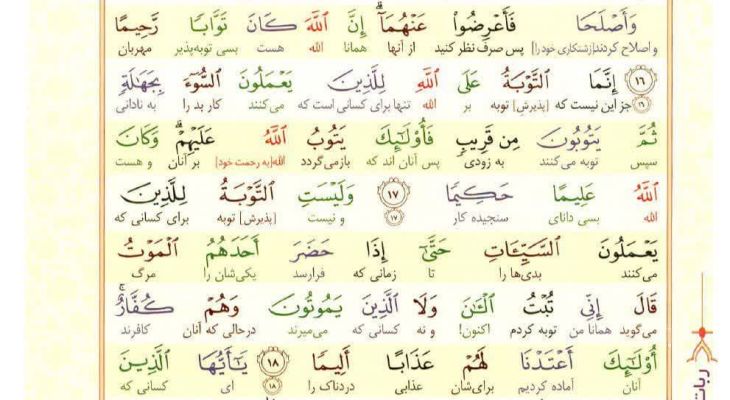 وَأَصْلَحَا فَأَعْرِضُوا۟ عَنْهُمَآ ۗ إِنَّ ٱللَّهَ كَانَ تَوَّابًا رَّحِيمًا
و اصلاح کردند[زشتکاری خود را] پس صرف نظر کنید از آنها همانا الله هست بسی توبه‌پذیر مهربان
۱۶ إِنَّمَا ٱلتَّوْبَةُ عَلَى ٱللَّهِ لِلَّذِينَ يَعْمَلُونَ ٱلسُّوٓءَ بِجَهَٰلَةٍ
۱۶ جز این نیست که [پذیرش] توبه بر الله تنها برای کسانی است که می‌کنند کار بد را به نادانی
ثُمَّ يَتُوبُونَ مِن قَرِيبٍ فَأُو۟لَٰٓئِكَ يَتُوبُ ٱللَّهُ عَلَيْهِمْ ۗ وَكَانَ
سپس توبه می‌کنند به زودی پس آنان اند که بازمی‌گردد الله[به رحمت خود] بر آنان و هست
ٱللَّهُ عَلِيمًا حَكِيمًا ۱۷ وَلَيْسَتِ ٱلتَّوْبَةُ لِلَّذِينَ
الله بسی دانای سنجیده کار ۱۷ و نیست [پذیرش] توبه برای کسانی که
يَعْمَلُونَ ٱلسَّيِّـَٔاتِ حَتَّىٰٓ إِذَا حَضَرَ أَحَدَهُمُ ٱلْمَوْتُ
می‌کنند بدی‌ها را تا زمانی که فرارسد یکی‌شان را مرگ
قَالَ إِنِّى تُبْتُ ٱلْـَٰٔنَ وَلَا ٱلَّذِينَ يَمُوتُونَ وَهُمْ كُفَّارٌ ۚ
می‌گوید همانا من توبه کردم اکنون! و نه کسانی که می‌میرند درحالی که آنان کافرند
أُو۟لَٰٓئِكَ أَعْتَدْنَا لَهُمْ عَذَابًا أَلِيمًا ۱۸ يَٰٓأَيُّهَا ٱلَّذِينَ
آنان آماده کردیم برای‌شان عذابی دردناک را ۱۸ ای کسانی که